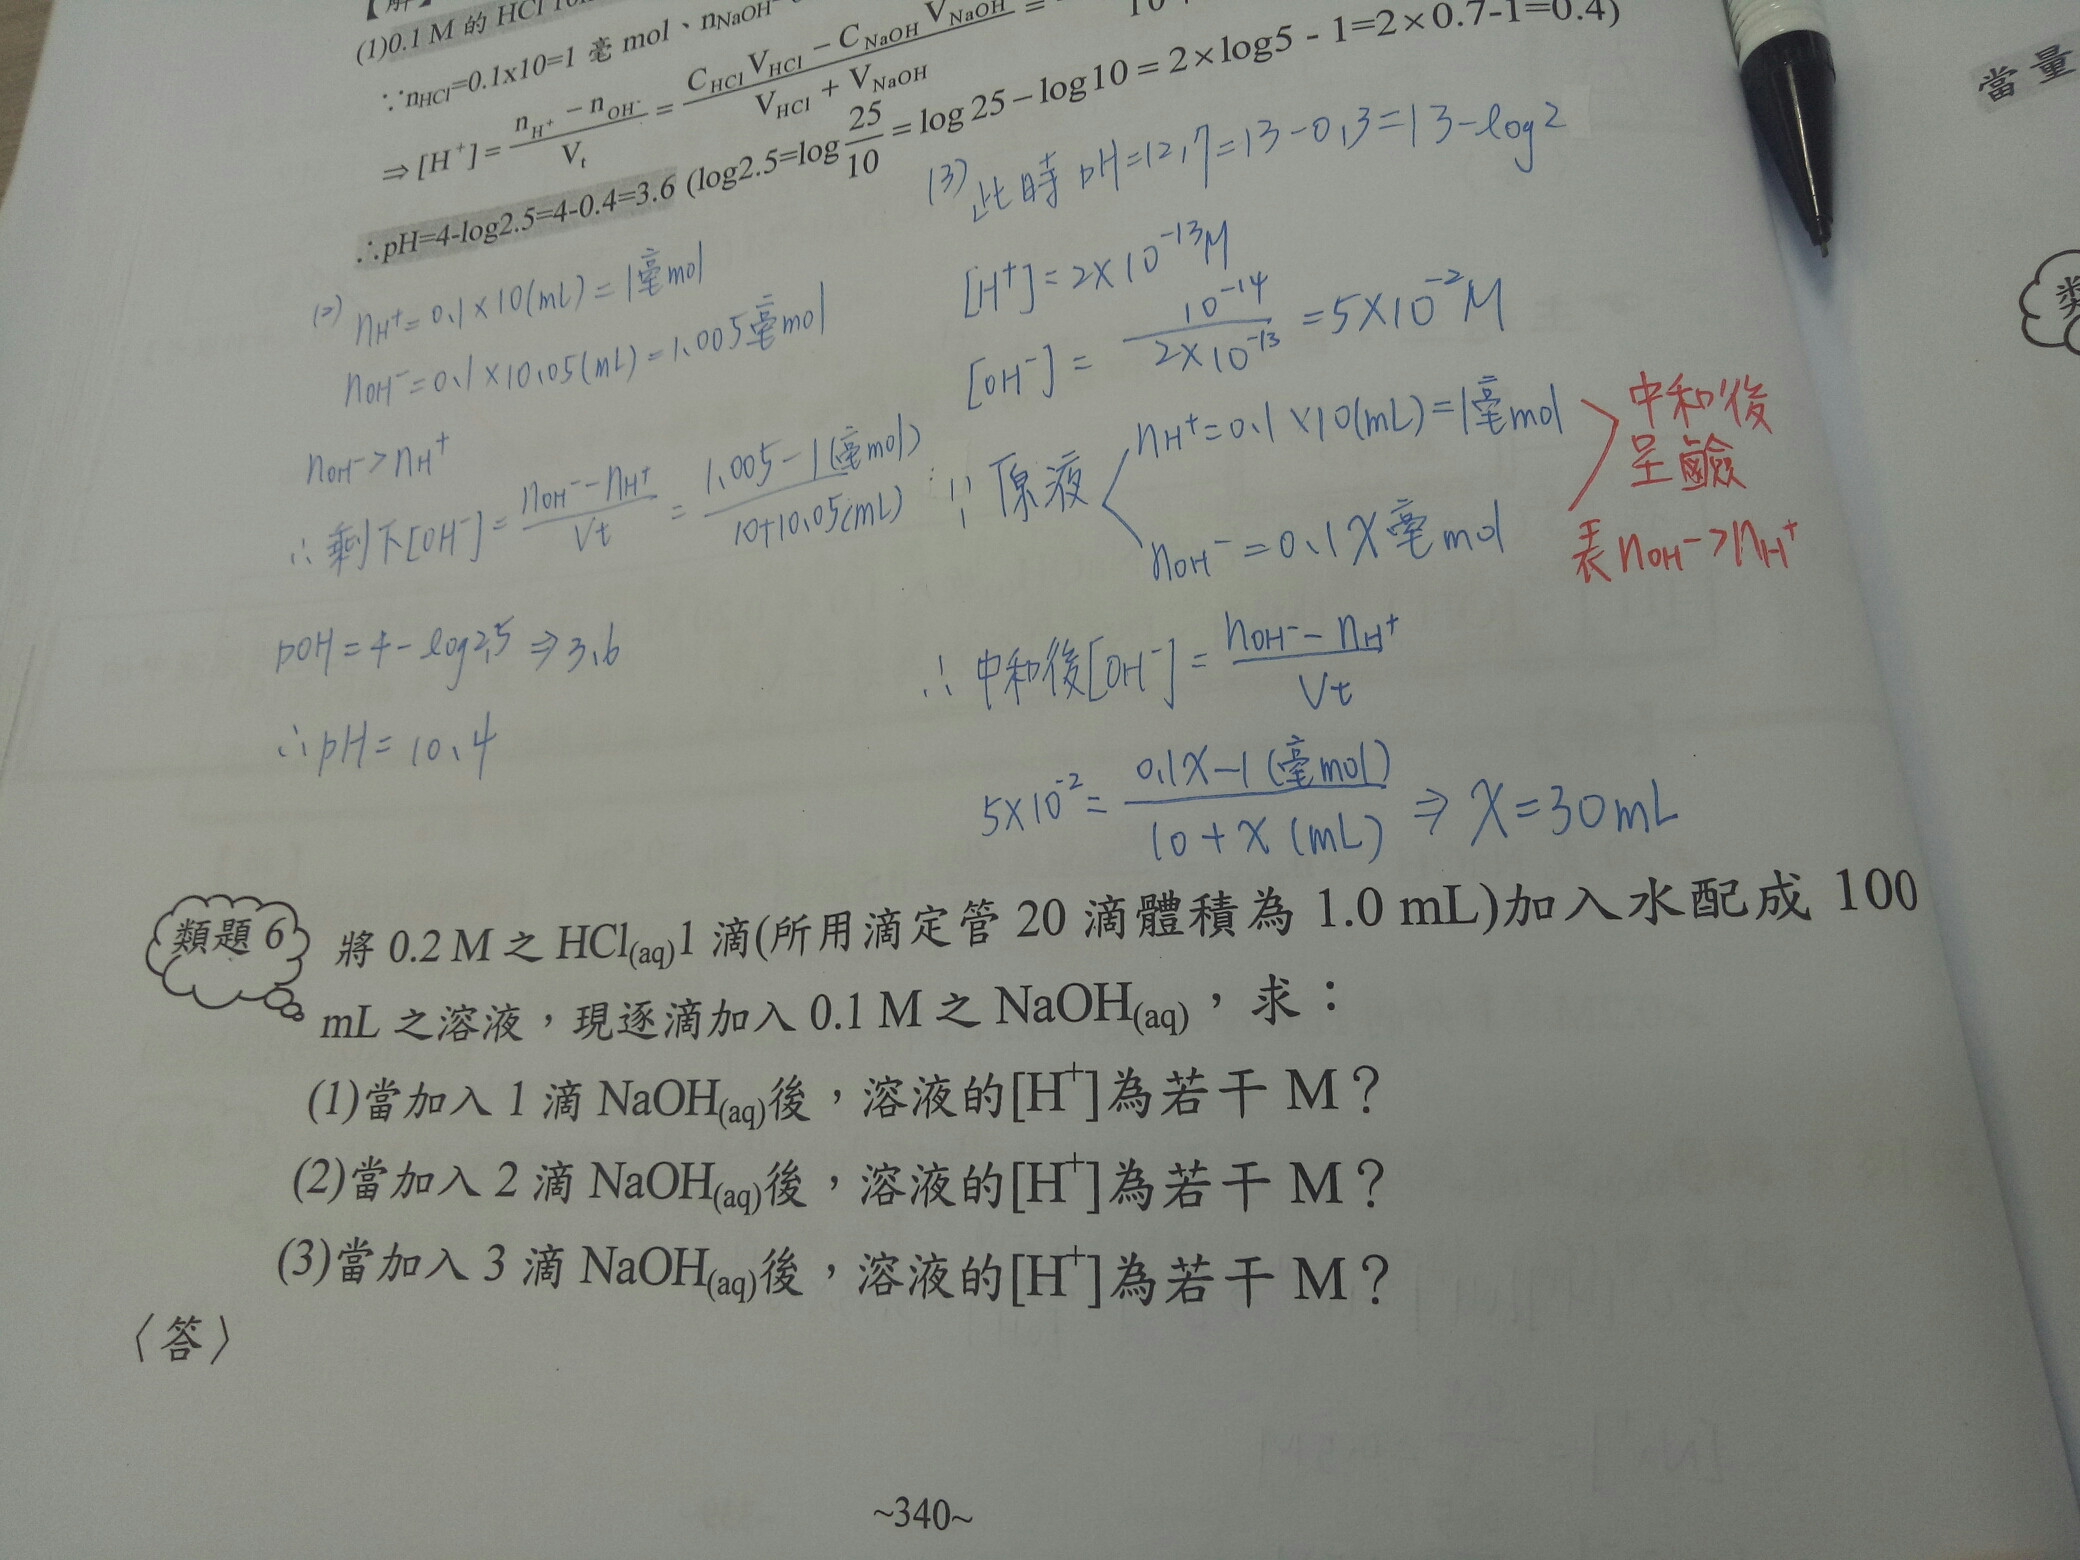 (1)0.1 M 的 HCl
∵nHCl=0.1x10=1 毫 mol、nNaOH
⇒[H⁺]= (nH⁺ − nOH⁻)/Vt = (CHCl VHCl − CNaOH VNaOH)/(VHCl + VNaOH) =
∴pH=4-log2.5=4-0.4=3.6 (log2.5=log 25/10 = log 25 – log 10 = 2×log5 - 1=2×0.7-1=0.4)
(2) nH⁺=0.1×10(mL)=1毫mol
nOH⁻=0.1×10.05(mL)=1.005毫mol
nOH⁻>nH⁺
∴剩下[OH⁻]= (nOH⁻−nH⁺)/Vt = (1.005−1(毫mol))/(10+10.05(mL))
pOH=4−log2.5⇒3.6
∴pH=10.4
(3)此時pH=12.7=13−0.3=13−log2
[H⁺]=2×10⁻¹³M
[OH⁻]= 10⁻¹⁴/(2×10⁻¹³) =5×10⁻²M
∵原液
nH⁺=0.1×10(mL)=1毫mol
nOH⁻=0.1X毫mol
中和後
呈鹼
表nOH⁻>nH⁺
∴中和後[OH⁻]= (nOH⁻−nH⁺)/Vt
5×10⁻²= (0.1X−1(毫mol))/(10+X(mL)) ⇒ X=30mL
類題 6 將 0.2 M 之 HCl(aq)1 滴(所用滴定管 20 滴體積為 1.0 mL)加入水配成 100
mL 之溶液，現逐滴加入 0.1 M 之 NaOH(aq)，求：
(1)當加入 1 滴 NaOH(aq)後，溶液的[H⁺]為若干 M？
(2)當加入 2 滴 NaOH(aq)後，溶液的[H⁺]為若干 M？
(3)當加入 3 滴 NaOH(aq)後，溶液的[H⁺]為若干 M？
〈答〉
~340~
當量